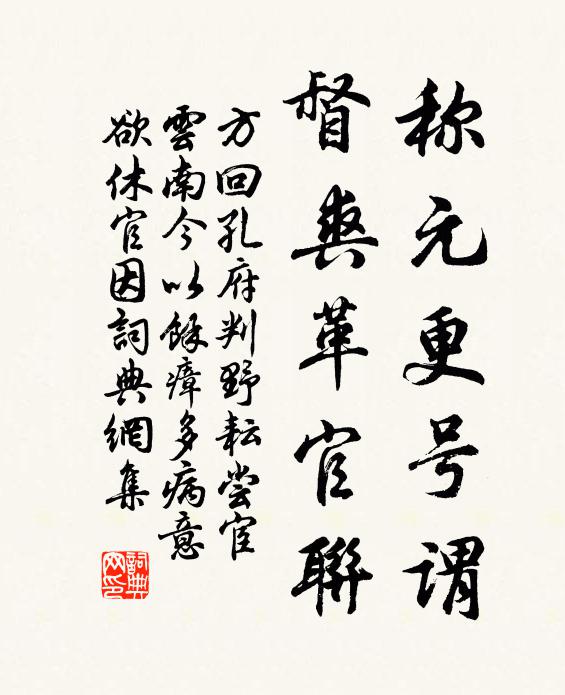 称元更号谓
督爽革官联
方回孔府判野耘尝宦
雲南今以餘瘴多病意
欲休官因詞典網集
詞典网印